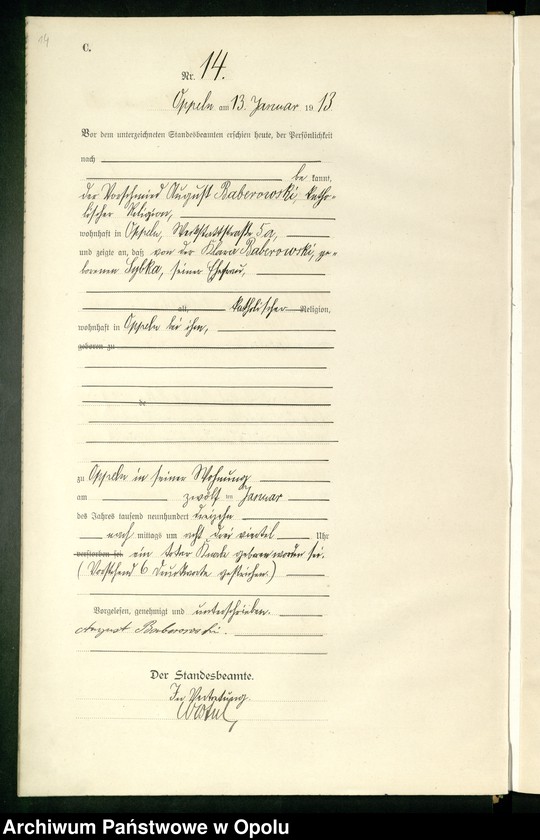 14
C.
Nr. 14.
Oppeln am 13. Januar 1913
Vor dem unterzeichneten Standesbeamten erschien heute, der Persönlichkeit
nach
be kannt,
der Vorschmied August Baberowski, katho-
lischer Religion,
wohnhaft in Oppeln, Werkstattstraße 5a,
und zeigte an, daß von der Klara Baberowski, ge-
borenen Sybka, seiner Ehefrau,
alt, katholischer Religion,
wohnhaft in Oppeln bei ihm,
geboren zu
de
zu Oppeln in seiner Wohnung
am zwölf ten Januar
des Jahres tausend neunhundert dreizehn
nach mittags um acht drei viertel Uhr
verstorben sei. ein toter Knabe geboren worden sei.
(Vorstehend 6 Druckworte gestrichen.)
Vorgelesen, genehmigt und unterschrieben.
August Baberowski.
Der Standesbeamte.
In Vertretung
Archiwum Państwowe w Opolu